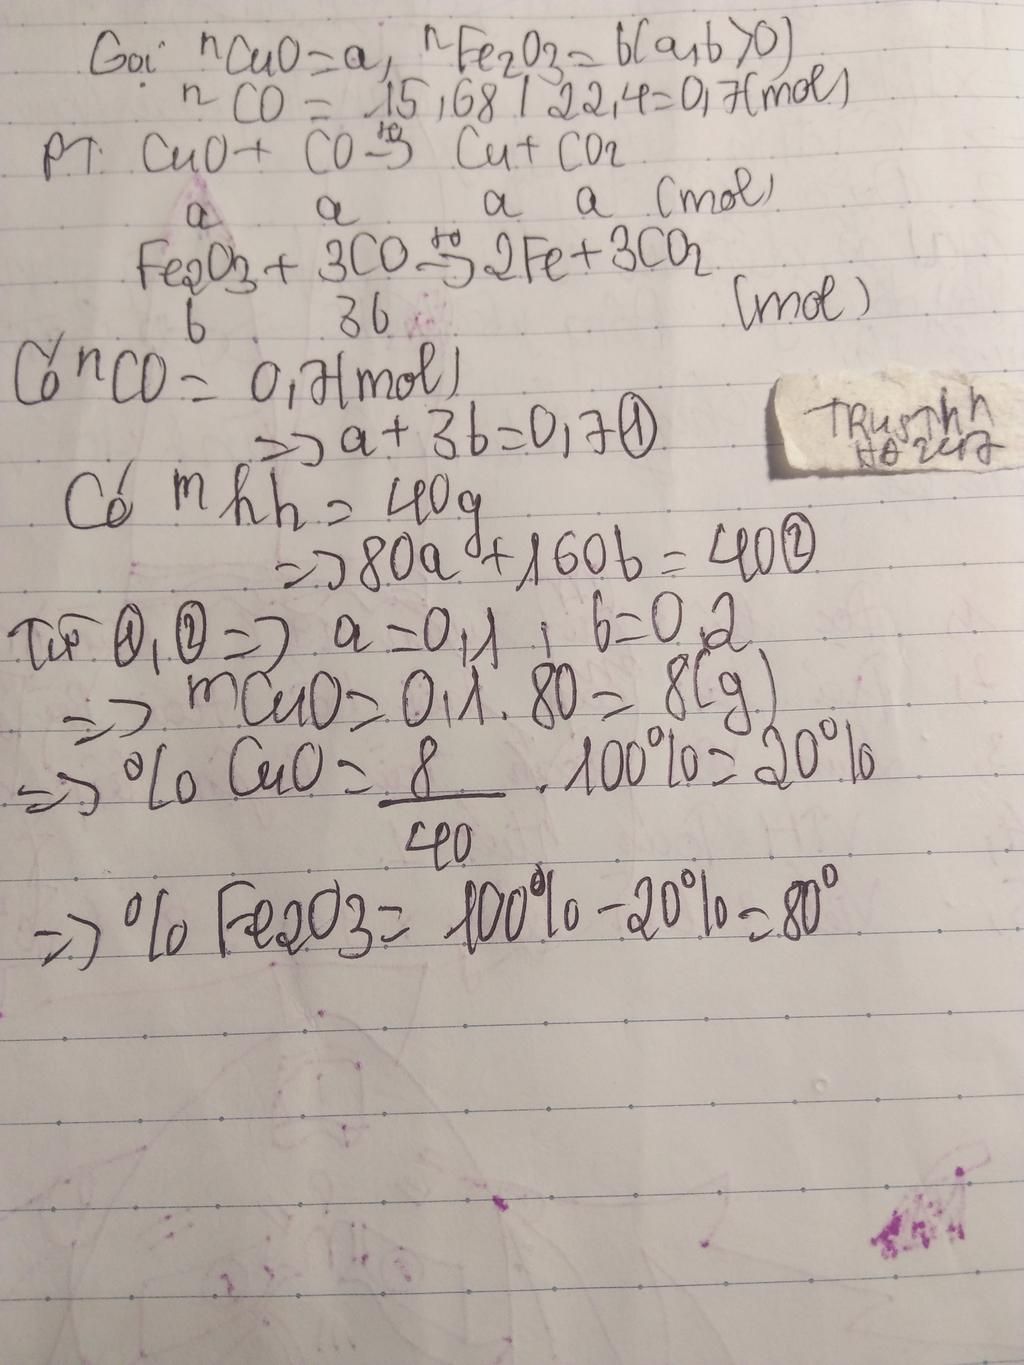 Gọi nCuO = a, nFe2O3 = b(a,b>0)
nCO = 15,68 / 22,4 = 0,7(mol)
PT CuO + CO t0→ Cu + CO2
a a a a (mol)
Fe2O3 + 3CO t0→ 2Fe + 3CO2
b 3b (mol)
Có nCO = 0,7(mol)
=> a + 3b = 0,7 ①
TRusThh
Có mhh = 40g
=> 80a + 160b = 40 ②
Từ ①, ② => a = 0,1 ; b = 0,2
=> mCuO = 0,1 . 80 = 8(g)
=> % CuO = 8 . 100% = 20%
40
=> % Fe2O3 = 100% - 20% = 80°